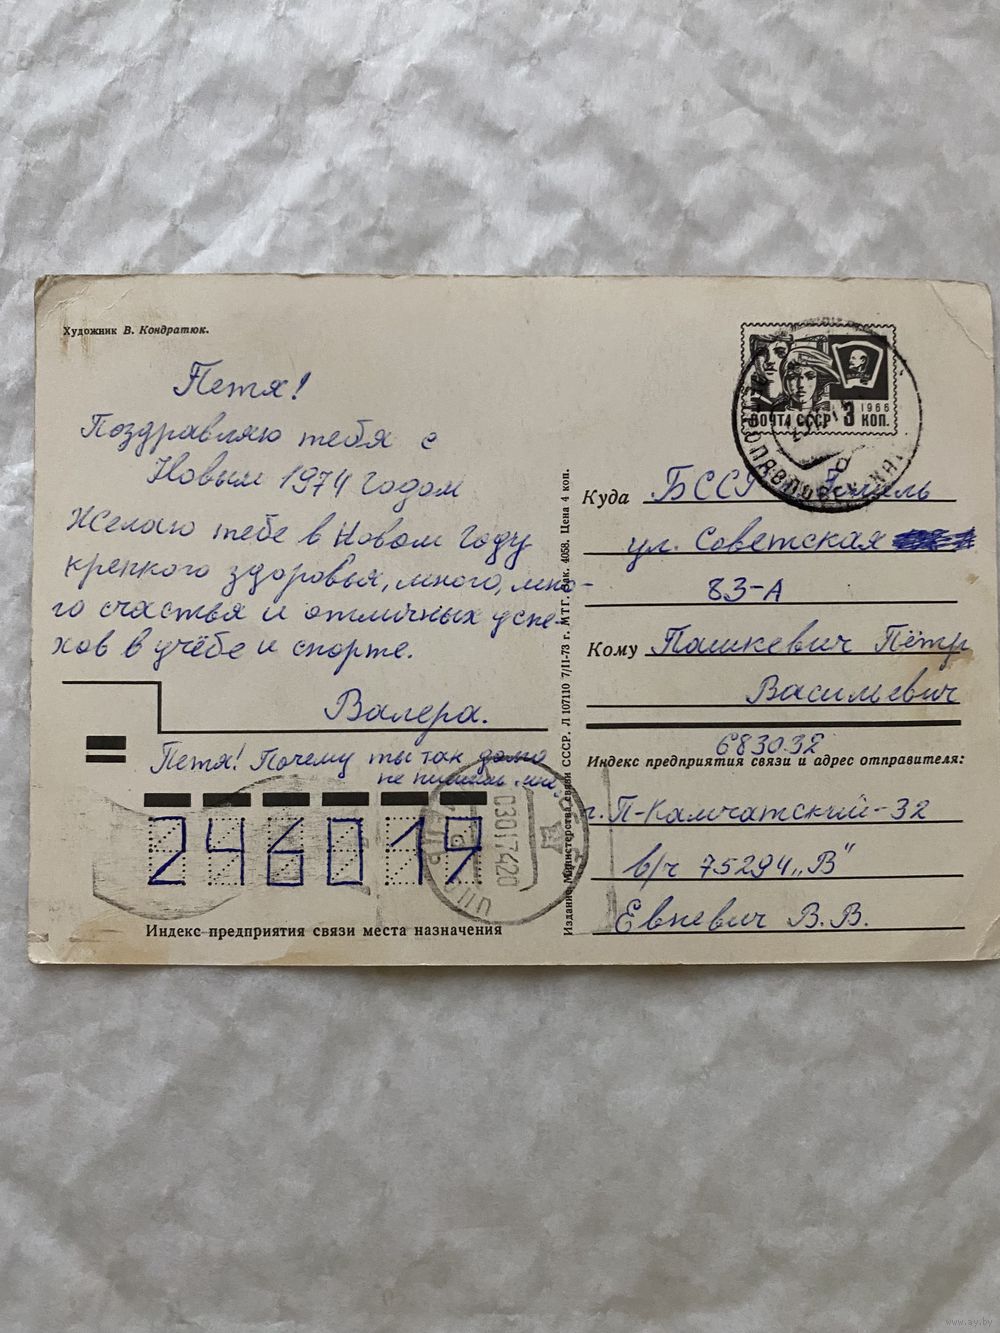 Художник В. Кондратюк.
Петя!
Поздравляю тебя с
Новым 1974 годом
Желаю тебе в Новом Году
крепкого здоровья, много, мно-
го счастья и отличных успе-
хов в учёбе и спорте.
Валера.
Петя! Почему ты так долго
не пишешь
246019
Индекс предприятия связи места назначения
Издание Министерства связи СССР. Л 107110 7/II-73 г. МТГ. Зак. 4058. Цена 4 коп.
1966
ПОЧТА СССР 3 КОП.
Куда БССР
ул. Советская
83-А
Кому Пашкевич Пётр
Васильевич
683032
Индекс предприятия связи и адрес отправителя:
г. П-Камчатский-32
в/ч 75294 „В"
Евневич В.В.
www.ay.by